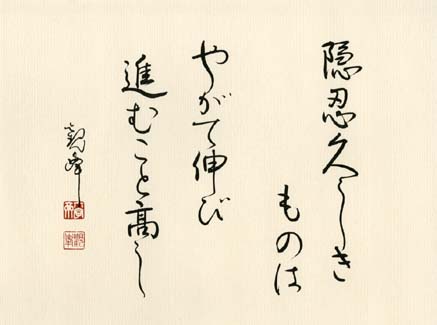 隠忍久しき
ものは
やがて伸び
進むこと高し